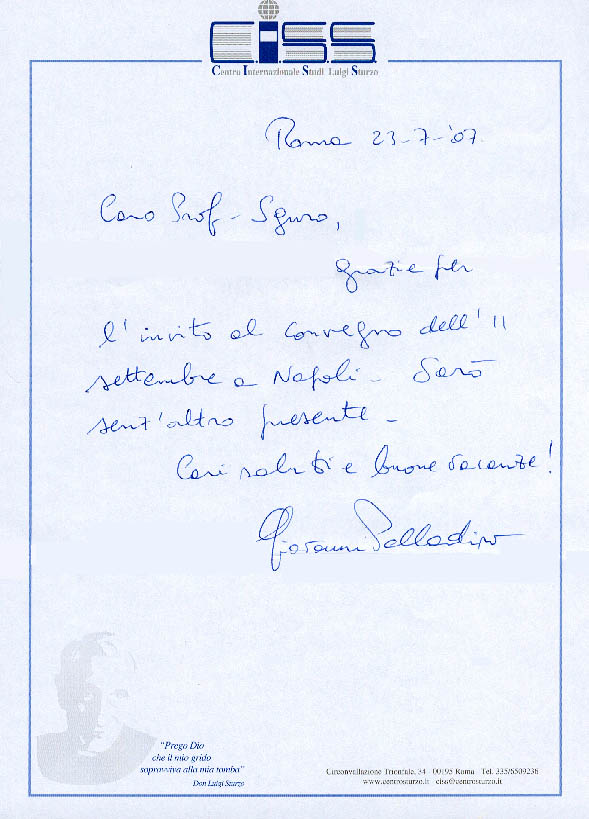 C.I.S.S.
Centro Internazionale Studi Luigi Sturzo
Roma 23-7-'07
Caro Prof. Sguro,
grazie per
l'invito al convegno dell'11
settembre a Napoli. Sarò
senz'altro presente.
Cari saluti e buone vacanze!
Giovanni Palladino
"Prego Dio
che il mio grido
sopravviva alla mia tomba"
Don Luigi Sturzo
Circonvallazione Trionfale, 34 00195 Roma Tel. 335/6509236
www.centrosturzo.it ciss@centrosturzo.it